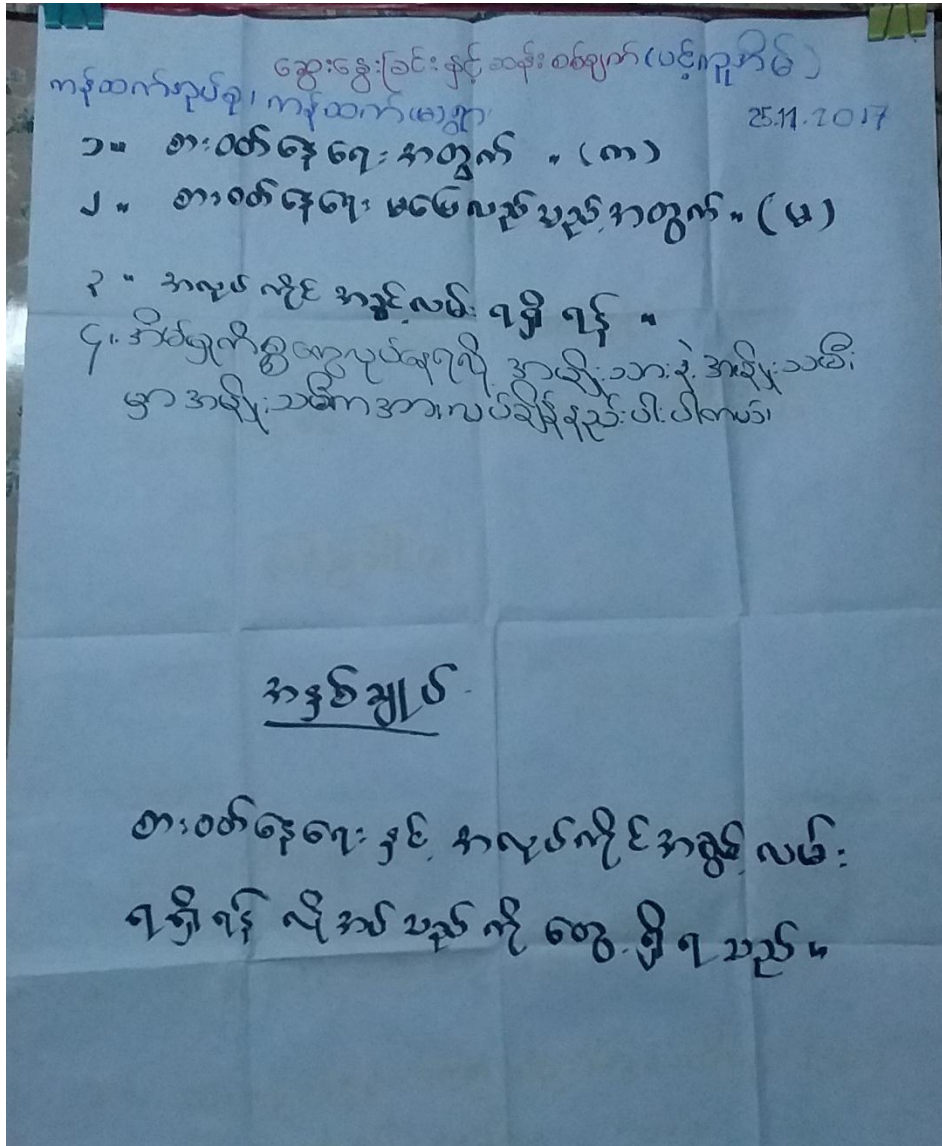 ဆွေးနွေးခြင်းနှင့်ဆန်းစစ်ချက် (ပင့်ကူအိမ်)
ကန်ထက်အုပ်စု၊ ကန်ထက်(မ)ရွာ
25.11.2017
၁။ စားဝတ်နေရေးအတွက်။ (က)
၂။ စားဝတ်နေရေး မပြေလည်သည့်အတွက်။ (မ)
၃။ အလုပ်ကိုင်အခွင့်လမ်း ရရှိရန်။
၄။ အိမ်မှုကိစ္စတွေလုပ်နေရလို့ အမျိုးသားနဲ့ အမျိုးသမီး
မှာ အမျိုးသမီးကအားလပ်ချိန်နည်းပါးပါတယ်၊
အနှစ်ချုပ်
စားဝတ်နေရေးနှင့် အလုပ်ကိုင်အခွင့်လမ်း
ရရှိရန် လိုအပ်သည်ကို တွေ့ရှိရသည်။